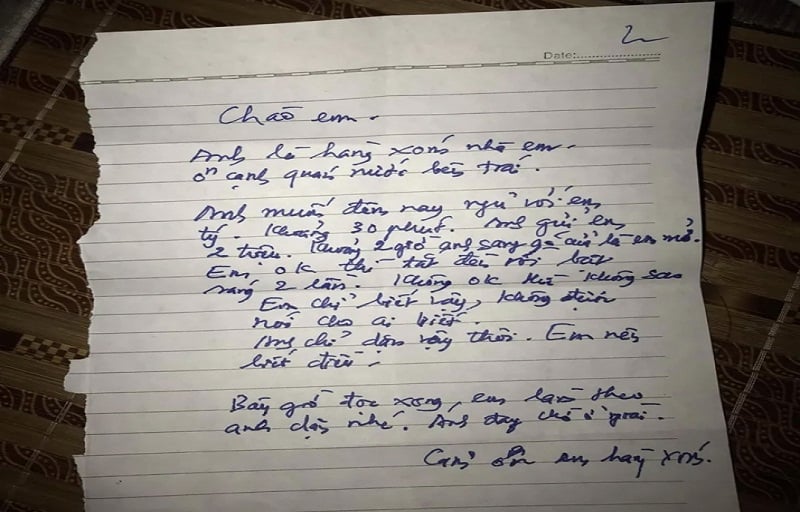 2
Date:
Chào em.
Anh là hàng xóm nhà em.
ở cạnh quán nước bên trái.
Anh muốn đêm nay ngủ với em
tý. Khoảng 30 phút. Anh gửi em
2 triệu. Khoảng 2 giờ anh sang gõ cửa là em mở.
Em ok thì tắt đèn rồi bật
sáng 2 lần. Không ok thì không sao
Em chỉ biết vậy, không được
nói cho ai biết.
Anh chỉ dặn vậy thôi. Em nên
biết điều.
Bây giờ đọc xong, em làm theo
anh dặn nhé. Anh đây chờ ở
Cảm ơn em hàng xóm.